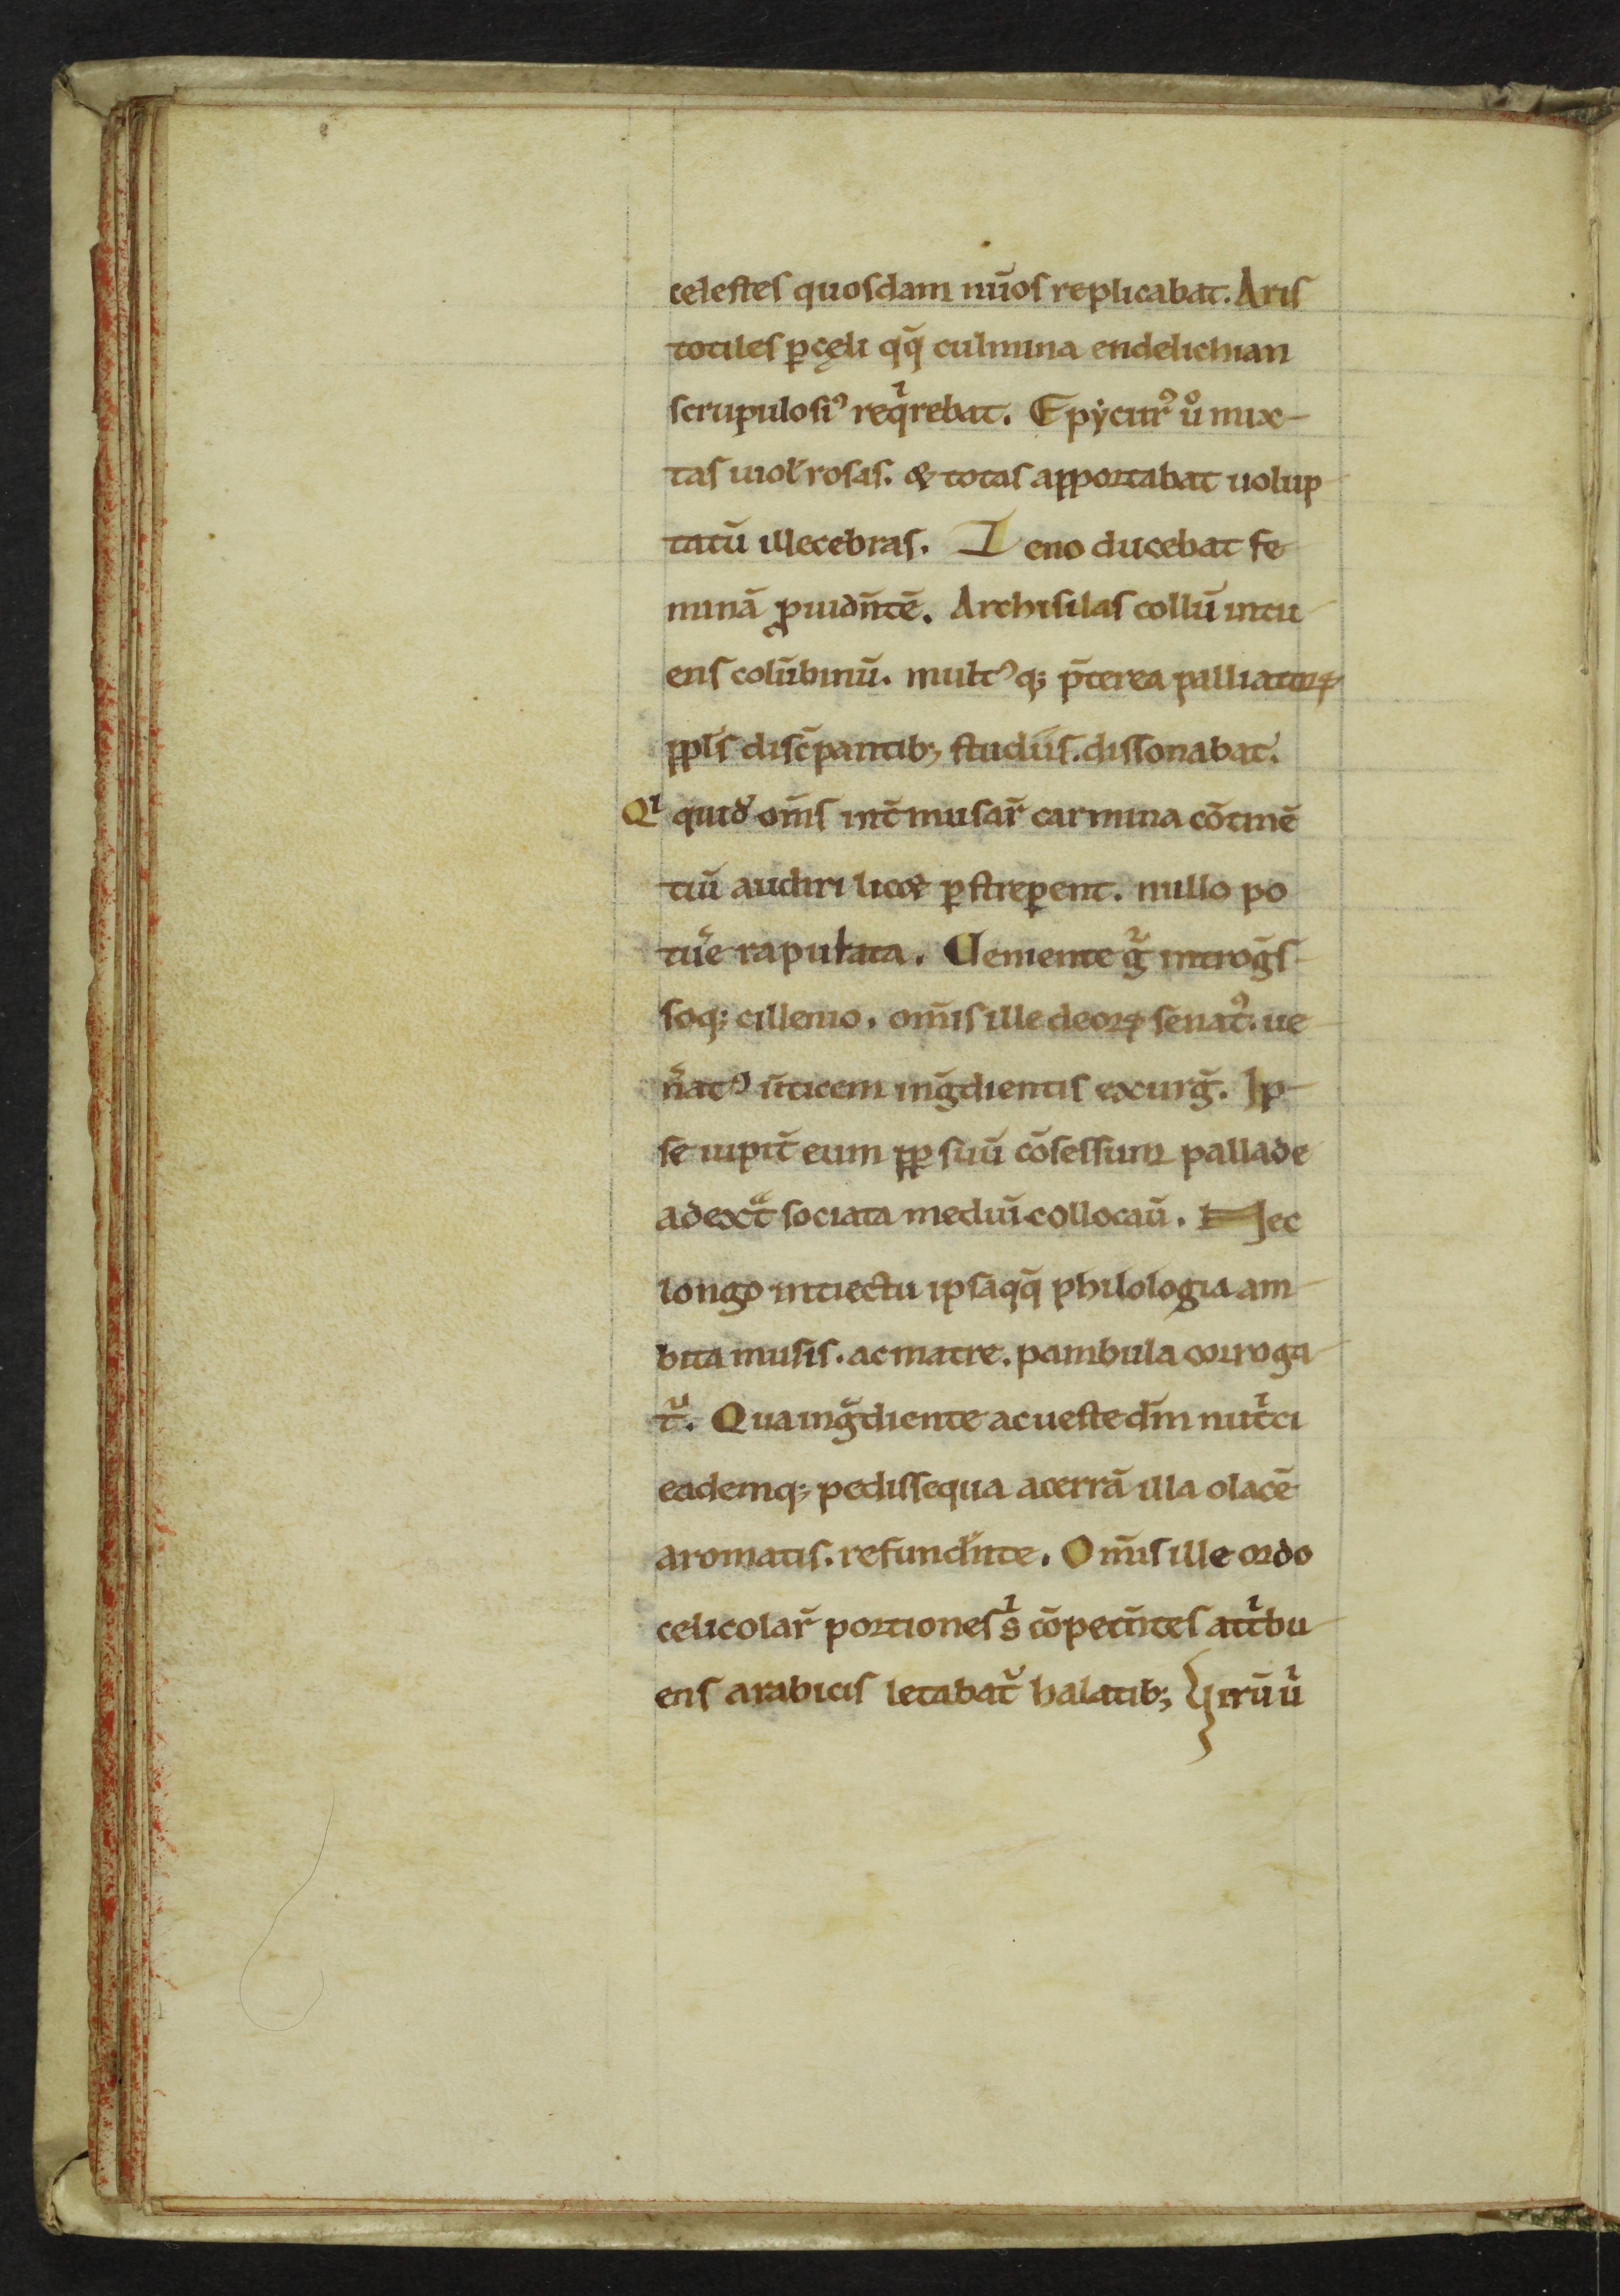 celestes quosdam nūos replicabat. Aris
totiles ꝑ cęli qq̄ culmina endelichian
scrupulosiꝰ reqͥrebat. Epẏcurꝰ ůͦ mix
tas uiol̄ rosis. & totas apportabat uolup
tatū illecebras. Z eno ducebat fe
minā ꝓuidn̄tē. Archisilas collū intu
ens colūbinū. multꝰq; p̄terea palliatoꝝ
ppl̄s discͥpantib; studiis. dissonabat.
Qͥ quid̾ om̄s int̄ musaꝝ carmina cōtinē
tiū audiri licet ꝑstreꝑent. nullo po
tue̾ rapulata. Clemente gͥ introg̾s
soq; cillenio. om̄is ille deoꝝ senatꝰ. ue
n̾atꝰ ūticem ing̾dientis exurg̾. Ip
se iupit̾ eum ꝓp suū cōsessum pallade
a dext͛ᷓ sociata mediū collocau̾. Nec
longo int̾iectu ipsaqq̄ philologia am
bita musis. ac matre. pambula corroga
tᷣ. Qua ing̾diente ac uestedm̄ nutͥci
eademq; pedissequa acerrā illa olacē
aromatis. refund̾nte. Om̄is ille ordo
celicolaꝝ portiones sͥ cōpetn̄tes attͥbu
ens arabicis letabatᷣ halatib; Virū uͥ